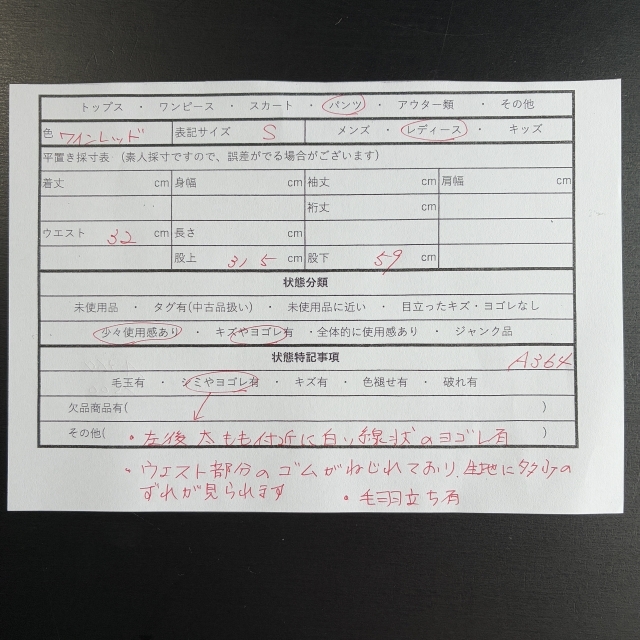 トップス ・ ワンピース ・ スカート ・ パンツ ・ アウター類 ・ その他
色 ワインレッド 表記サイズ S メンズ ・ レディース ・ キッズ
平置き採寸表 （素人採寸ですので、誤差がでる場合がございます）
着丈 cm 身幅 cm 袖丈 cm 肩幅 cm
裄丈 cm
ウエスト 32 cm 長さ cm
股上 31.5 cm 股下 59 cm
状態分類
未使用品 ・ タグ有(中古品扱い) ・ 未使用品に近い ・ 目立ったキズ・ヨゴレなし
少々使用感あり ・ キズやヨゴレ有 ・全体的に使用感あり ・ ジャンク品
状態特記事項 A364
毛玉有 ・ シミやヨゴレ有 ・ キズ有 ・ 色褪せ有 ・ 破れ有
欠品商品有( )
その他( )
・左後 太もも付近に白い線状のヨゴレ有
・ウエスト部分のゴムがねじれており、生地に多少の
ずれが見られます ・毛羽立ち有